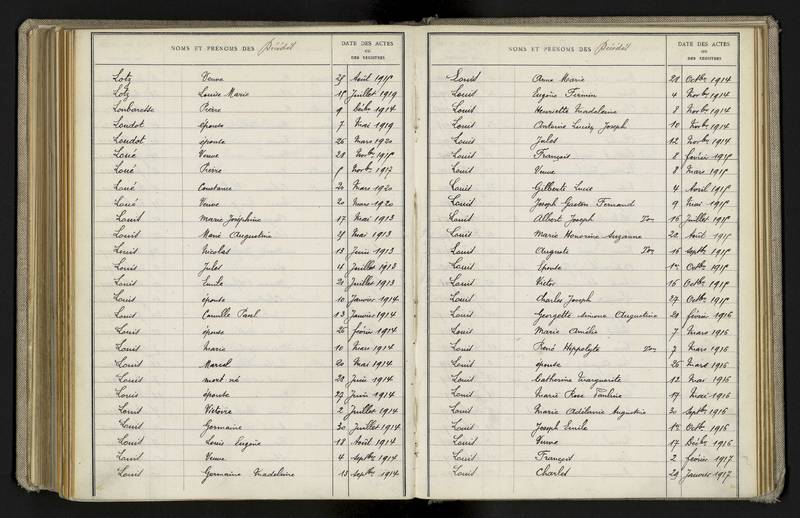 NOMS ET PRÉNOMS DES Décédés
DATE DES ACTES
OU
DES REGISTRES
Lotz Veuve Août
Lotz Louise Marie Juillet 1919
Loubaresse Pierre 9 Décbre 1914
Loudot épouse 7 Mai 1919
Loudot épouse 26 Mars 1920
Loué Veuve 28 Novbre
Loué Pierre Novbre 1917
Loué Constance 20 Mars 1920
Loué Veuve 20 Mars 1920
Louis Marie Joséphine 17 Mai 1913
Louis Augustine Mai 1913
Louis Nicolas 13 Juin 1913
Louis Jules 4 Juillet 1913
Louis Emile 21 Juillet 1913
Louis épouse 10 Janvier 1914
Louis Camille Paul 13 Janvier 1914
Louis épouse 26 février 1914
Louis Marie 10 Mars 1914
Louis Marcel 20 Mai 1914
Louis mort-né 28 Juin 1914
Louis épouse 29 Juin 1914
Louis Victoire 2 Juillet 1914
Louis Germaine 30 Juillet 1914
Louis Louis Eugène 18 Août 1914
Louis Veuve 4 Septbre 1914
Louis Germaine Madeleine 13 Septbre 1914
NOMS ET PRÉNOMS DES Décédés
DATE DES ACTES
OU
DES REGISTRES
Louis Anne Marie 28 Octbre 1914
Louis Eugène Firmin 4 Novbre 1914
Louis Henriette Madeleine 8 Novbre 1914
Louis Antoine Joseph 10 Novbre 1914
Louis Jules 12 Novbre 1914
Louis François 8 février
Louis Veuve 8 Mars
Louis Gilberte Lucie 4 Avril
Louis Joseph Gaston Fernand 9 Mai
Louis Albert Joseph 16 Juillet
Louis Marie Honorine Suzanne 22 Août
Louis Auguste 16 Septbre
Louis Epouse 1er Octbre
Louis Victor 16 Octbre
Louis Charles Joseph 27 Octbre
Louis Georgette Simone Augustine 21 février 1916
Louis Marie Amélie 7 Mars 1916
Louis René Hippolyte 7 Mars 1916
Louis épouse 26 Mars 1916
Louis Catherine Marguerite 12 Mai 1916
Louis Marie Rose Pauline 17 Mai 1916
Louis Marie Augustine 20 Septbre 1916
Louis Joseph Emile 1er Octbre 1916
Louis Veuve 17 Décbre 1916
Louis François 2 février 1917
Louis Charles 29 Janvier 1917